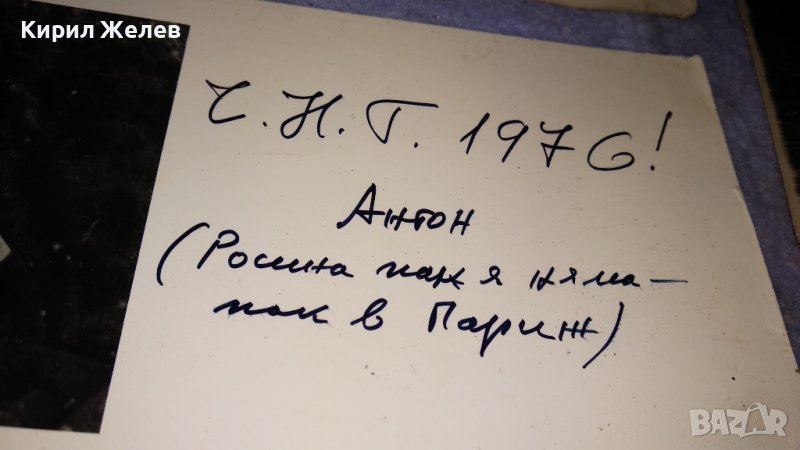 Кирил Желев
Ч.Н.Г. 1976!
Антон
(Росица пак я няма –
пак в Париж)
BAZAR